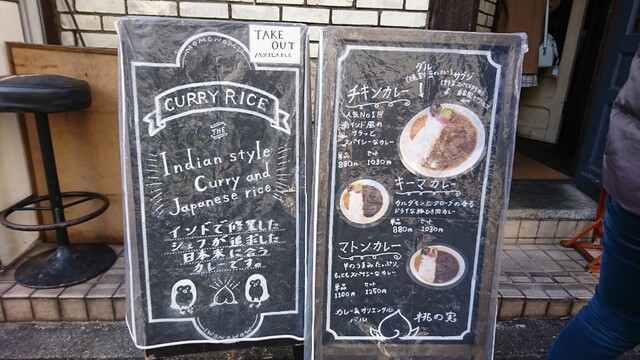 MOMONOMI
TAKE
OUT
AVAILABLE
CURRY RICE
THE
Indian style
Curry and
Japanese rice
インドで修業した
シェフが追求した
日本米に合う
カレーです。
MOMONOMI
ダル
サブジ
チキンカレー!
人気No.1!!
南インド風の
サラッと
スパイシーなカレー
単品 セット
880円 1030円
キーマカレー
カルダモンとクローブの香る
ドライな挽き肉カレー
単品 セット
880円 1030円
マトンカレー
羊のうまみたっぷり、
もっともスパイシーなカレー
単品 セット
1100円 1250円
カレー&オリエンタル
バル
桃の実